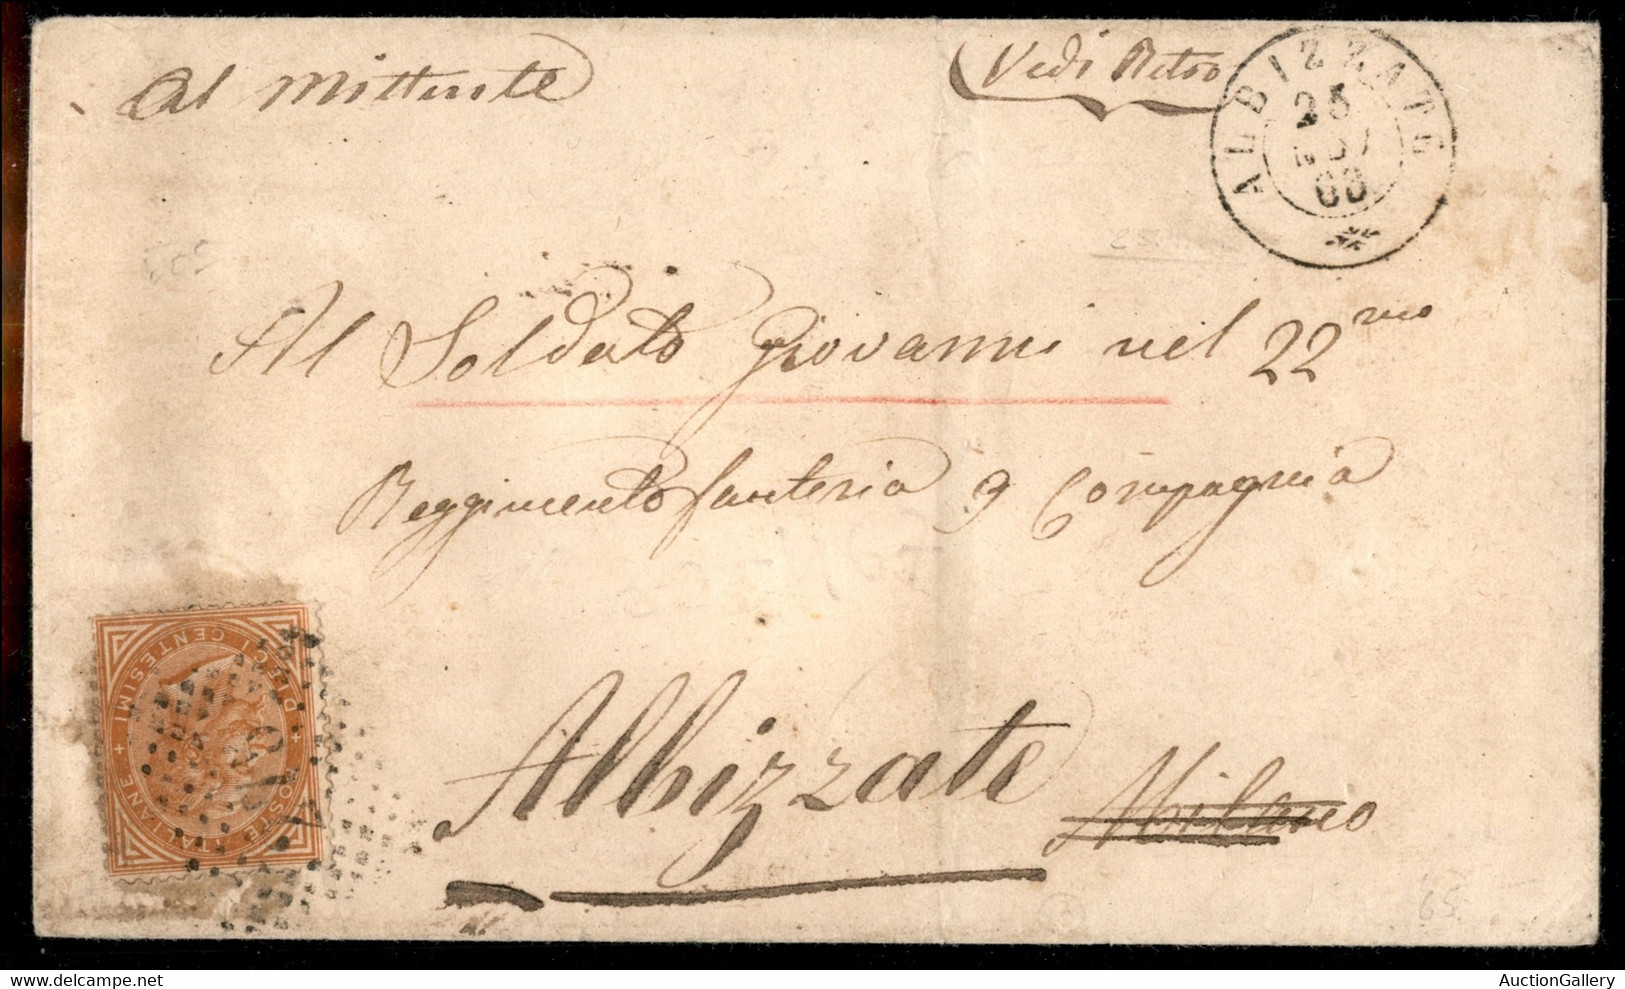 Al Mittente
Vedi Retro
ALBIZZATE
25
68
Al Soldato Giovanni nel 22mo
Reggimento fanteria 9 Compagnia
Albizzate Milano
POSTE ITALIANE
DIECI CENTESIMI
65
AuctionGallery